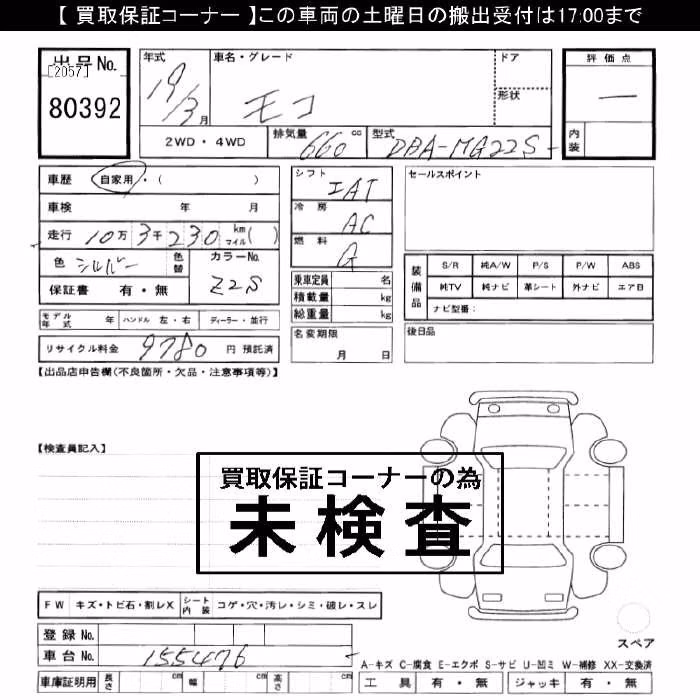 【 買取保証コーナー 】この車両の土曜日の搬出受付は17:00まで
出品No.
[2057]
80392
年式 19/3月
車名・グレード モコ
ドア
形状
評価点
—
内装
2WD・4WD
排気量 660 cc
型式 DBA-MG22S-
車歴 自家用・( )
車検 年 月
走行 10万3千230 km マイル( )
色 シルバー 色替 カラーNo. Z2S
保証書 有・無
モデル年式 年 ハンドル 左・右 ディーラー・並行
リサイクル料金 9780 円 預託済
シフト IAT
冷房 AC
燃料 G
乗車定員 名
積載量 kg
総重量 kg
名変期限
月 日
セールスポイント
装備品 S/R 純A/W P/S P/W ABS
純TV 純ナビ 革シート 外ナビ エアB
ナビ型番:
後日品
【出品店申告欄(不良箇所・欠品・注意事項等)】
【検査員記入】
買取保証コーナーの為
未検査
FW キズ・トビ石・割レX シート内装 コゲ・穴・汚レ・シミ・破レ・スレ
登録No.
車台No. 155476
車庫証明用 長さ cm 幅 cm 高さ cm
スペア
A-キズ C-腐食 E-エクボ S-サビ U-凹ミ W-補修 XX-交換済
工具 有・無 ジャッキ 有・無